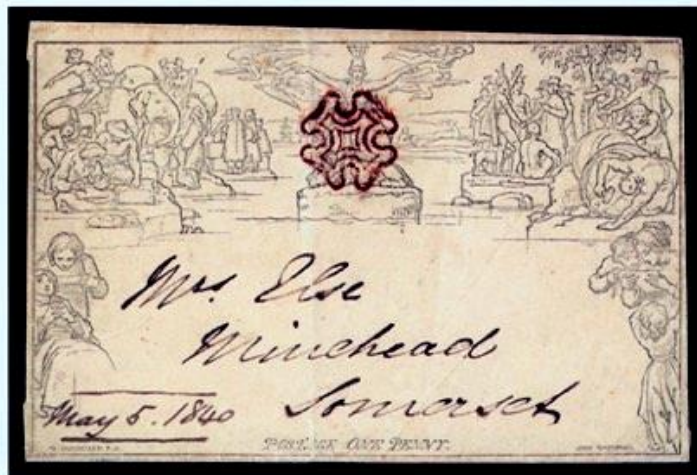 Mrs. Else
Minehead
Somerset
May 5. 1840
POSTAGE ONE PENNY.